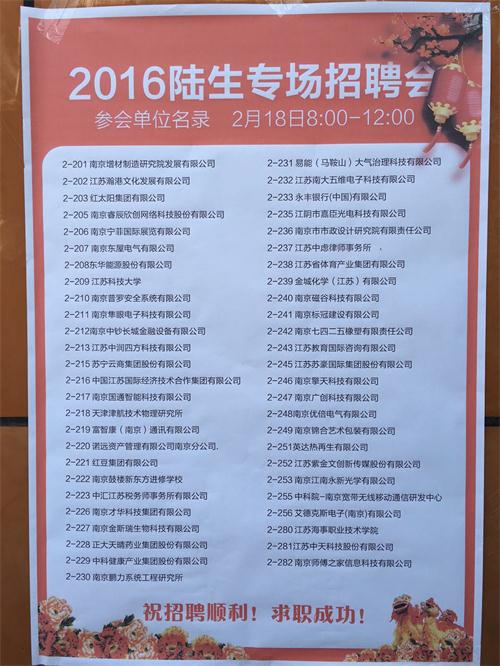 2016陆生专场招聘会
参会单位名录 2月18日8:00-12:00
2-201 南京增材制造研究院发展有限公司
2-202 江苏瀚港文化发展有限公司
2-203 红太阳集团有限公司
2-205 南京睿辰欣创网络科技股份有限公司
2-206 南京宁菲国际展览有限公司
2-207 南京东屋电气有限公司
2-208东华能源股份有限公司
2-209 江苏科技大学
2-210 南京普罗安全系统有限公司
2-211 南京隼眼电子科技有限公司
2-212南京中钞长城金融设备有限公司
2-213 江苏中润四方科技有限公司
2-215 苏宁云商集团股份有限公司
2-216 中国江苏国际经济技术合作集团有限公司
2-217 南京国通智能科技有限公司
2-218 天津津航技术物理研究所
2-219 富智康（南京）通讯有限公司
2-220 诺远资产管理有限公司南京分公司
2-221 红豆集团有限公司
2-222 南京鼓楼新东方进修学校
2-223 中汇江苏税务师事务所有限公司
2-226 南京才华科技集团有限公司
2-227 南京金斯瑞生物科技有限公司
2-228 正大天晴药业集团股份有限公司
2-229 中科健康产业集团股份有限公司
2-230 南京鹏力系统工程研究所
2-231 易能（马鞍山）大气治理科技有限公司
2-232 江苏南大五维电子科技有限公司
2-233 永丰银行(中国)有限公司
2-235 江阴市嘉臣光电科技有限公司
2-236 南京市市政设计研究院有限责任公司
2-237 江苏中虑律师事务所
2-238 江苏省体育产业集团有限公司
2-239 金城化学（江苏）有限公司
2-240 南京磁谷科技有限公司
2-241 南京标冠建设有限公司
2-242 南京七四二五橡塑有限责任公司
2-243 江苏教育国际咨询有限公司
2-245 江苏苏豪国际集团股份有限公司
2-246 南京擎天科技有限公司
2-247 南京广创科技有限公司
2-248南京优倍电气有限公司
2-249 南京锦合艺术包装有限公司
2-251英达热再生有限公司
2-252 江苏紫金文创新传媒股份有限公司
2-253 南京江南永新光学有限公司
2-255 中科院-南京宽带无线移动通信研发中心
2-256 艾德克斯电子(南京)有限公司
2-280 江苏海事职业技术学院
2-281江苏中天科技股份有限公司
2-282 南京师傅之家信息科技有限公司
祝招聘顺利！求职成功！